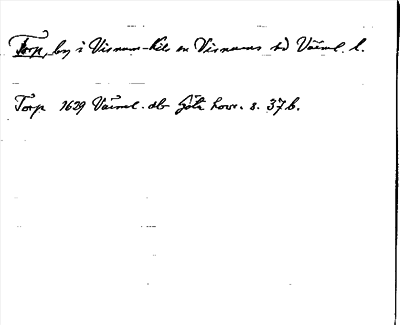 Torp, by i Visnum-Kils sn Visnums hd Värml. l.
Torp 1629 Värml. db Göta hovr. s. 37 b.